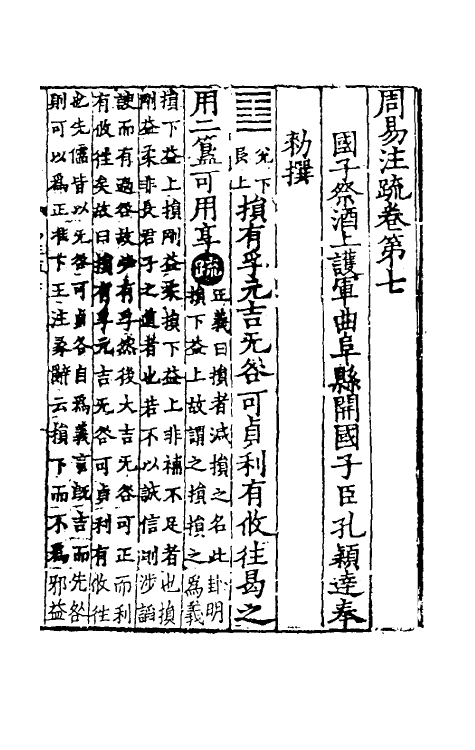 周易注疏卷第七
國子祭酒上護軍曲阜縣開國子臣孔穎達奉
勑撰
䷨兊下艮上損有孚元吉无咎可貞利有攸往曷之
用二簋可用享疏正義曰損者減損之名此卦明
損下益上故謂之損損之爲義
損下益上損剛益柔損下益上非補不足者也損
剛益柔非長君子之道者也若不以誠信則涉諂
諛而有過咎故必有孚然後大吉无咎可正而利
有攸往矣故曰損有孚元吉无咎可貞利有攸往
也先儒皆以无咎可貞各自爲義言旣吉而先咎
則可以爲正准下王注彖辭云損下而不爲邪益